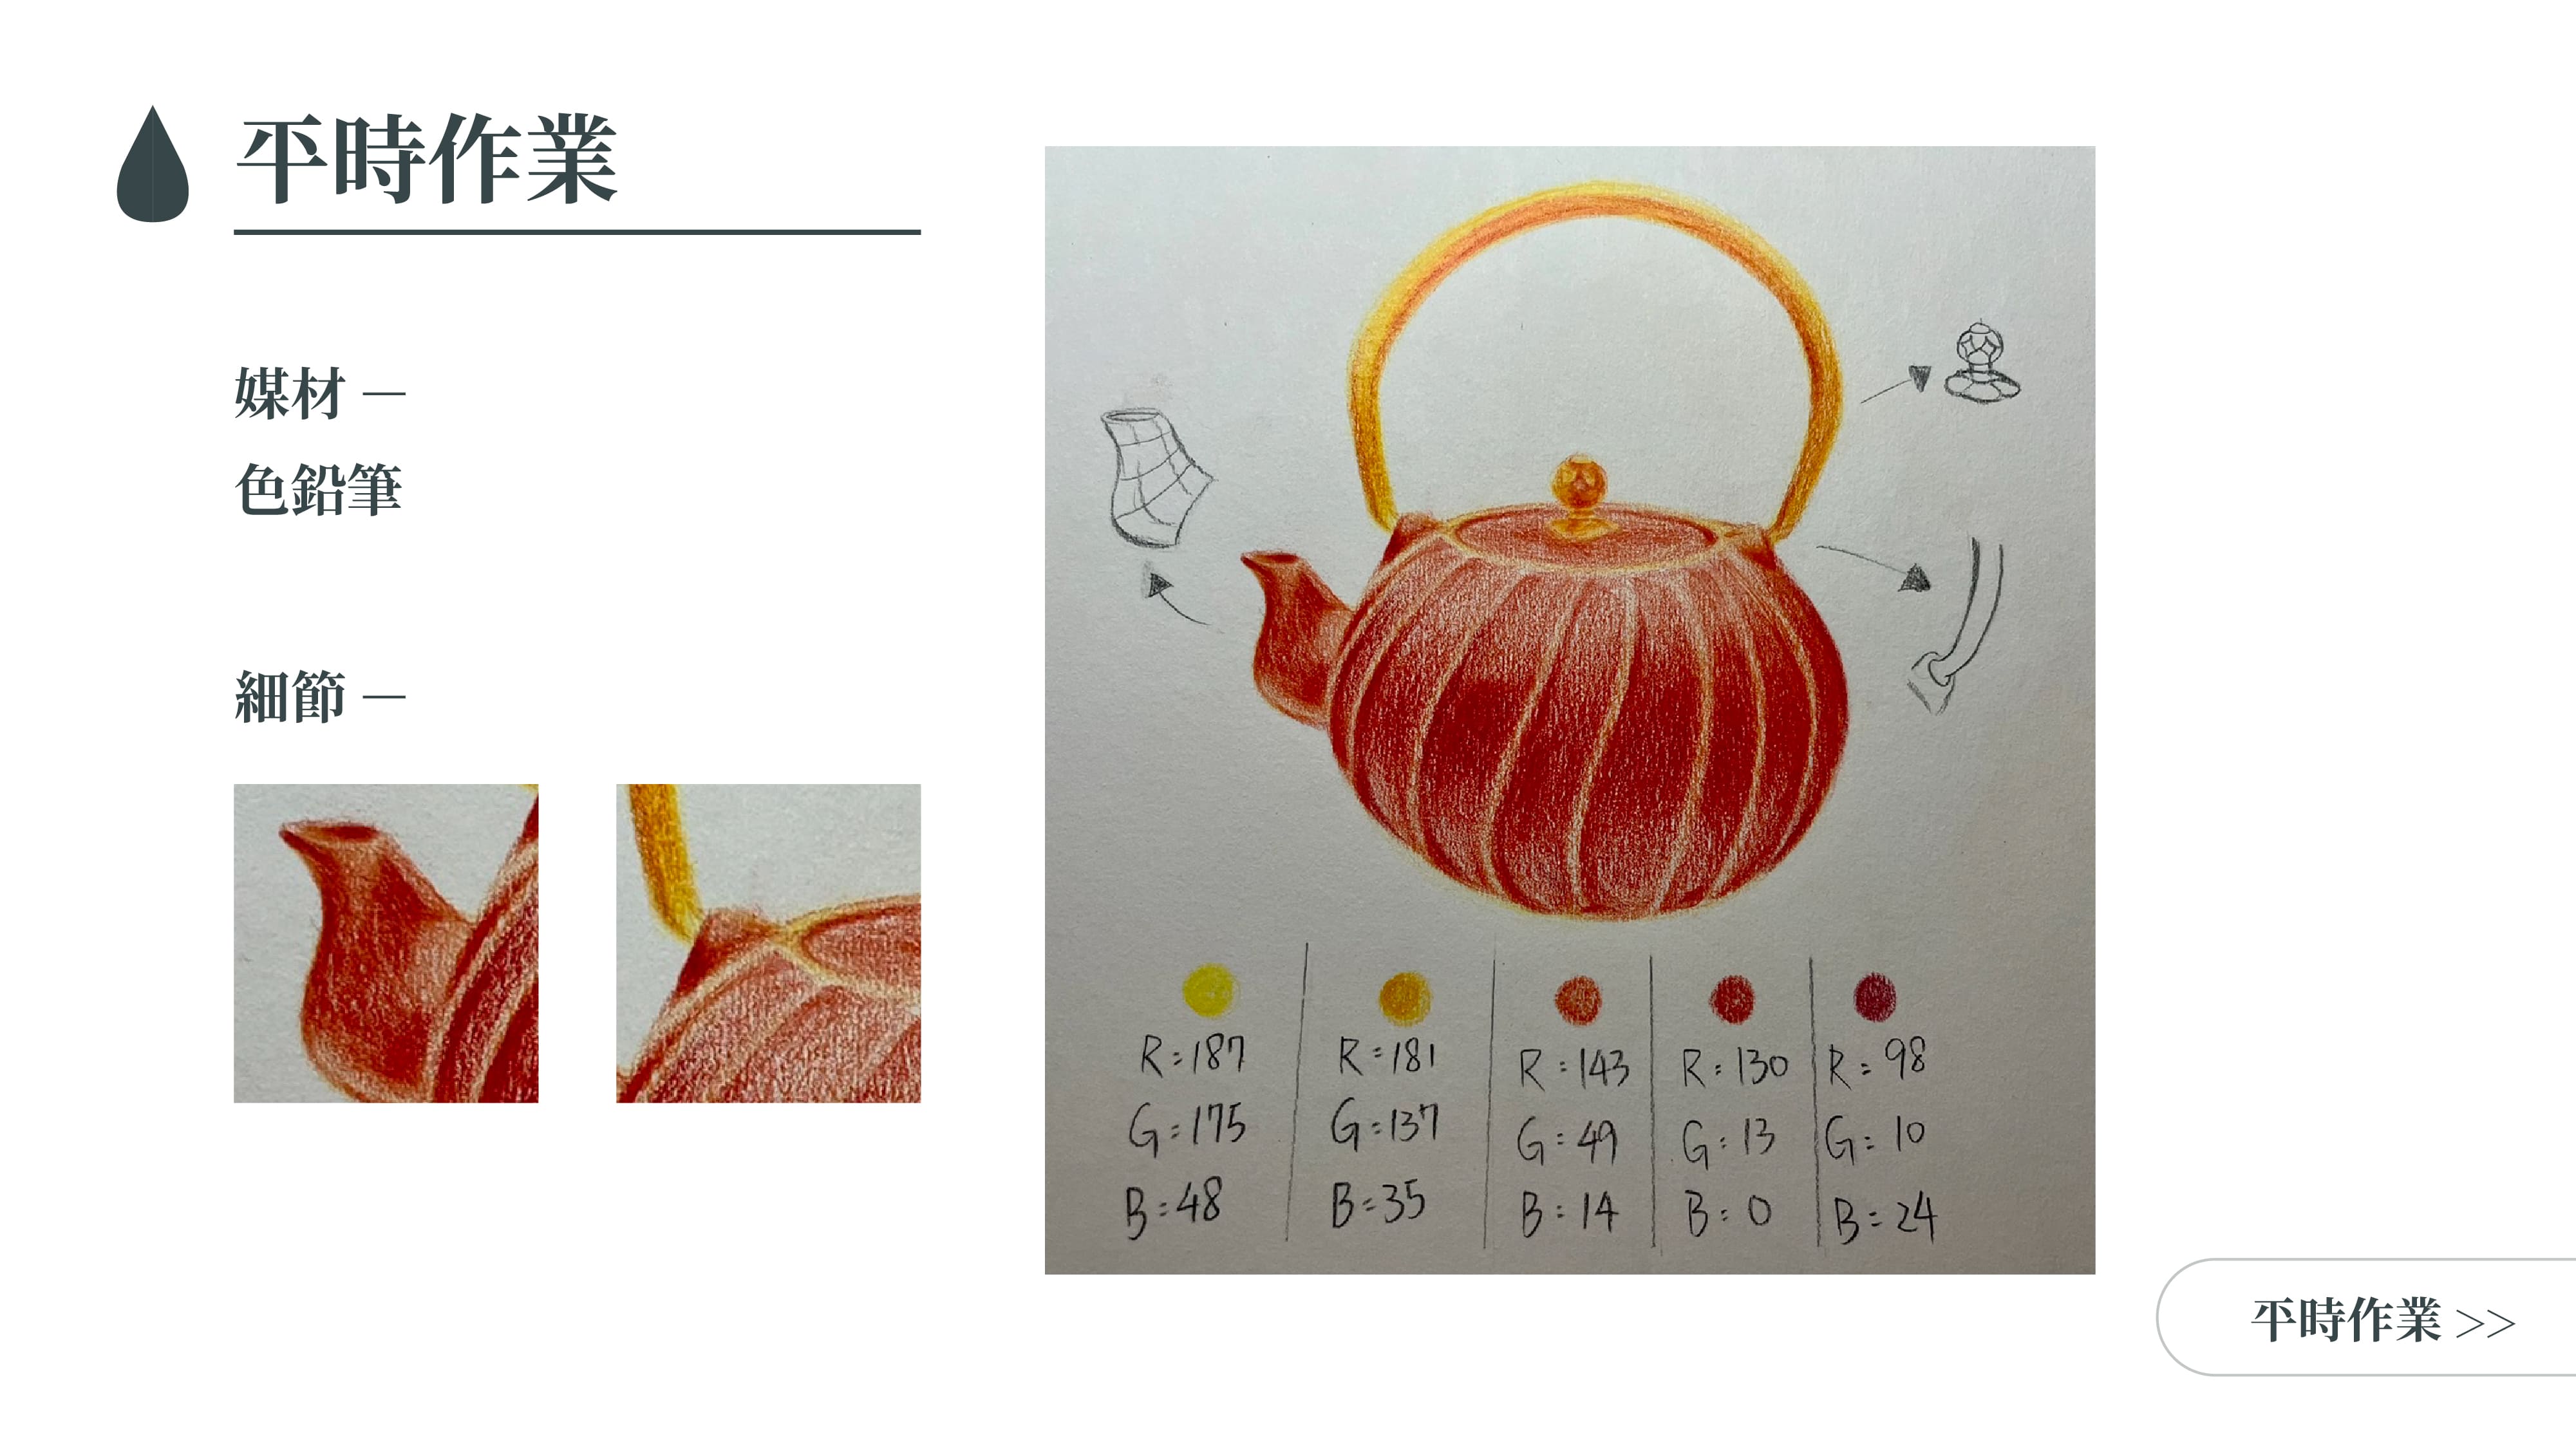 平時作業
媒材 —
色鉛筆
細節 —
R:187
G:175
B:48
R:181
G:137
B:35
R:143
G:49
B:14
R:130
G:13
B:0
R:98
G:10
B:24
平時作業 >>